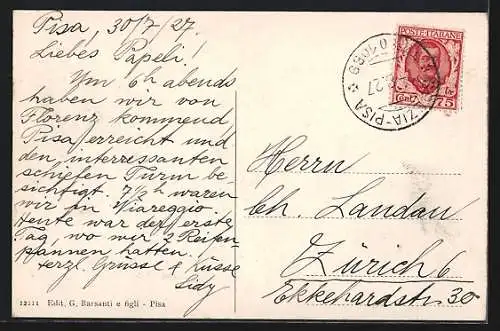 Pisa, 30/7/27.
Liebes Papeli!
Um 6h abends
haben wir von
Florenz kommend
Pisa erreicht und
den interressanten
schiefen Turm be-
sichtigt. 7½h waren
wir in Viareggio.
Heute war der erste
Tag, wo wir 2 Reifen-
pannen hatten.
Herzl. Grüsse & Küsse
Sidy
12111 Edit. G. Barsanti e figli - Pisa
POSTE ITALIANE
Cent. 75
ZIA-PISA
27
Herrn
Ch. Landau
Zürich 6
Ekkehardstr. 30